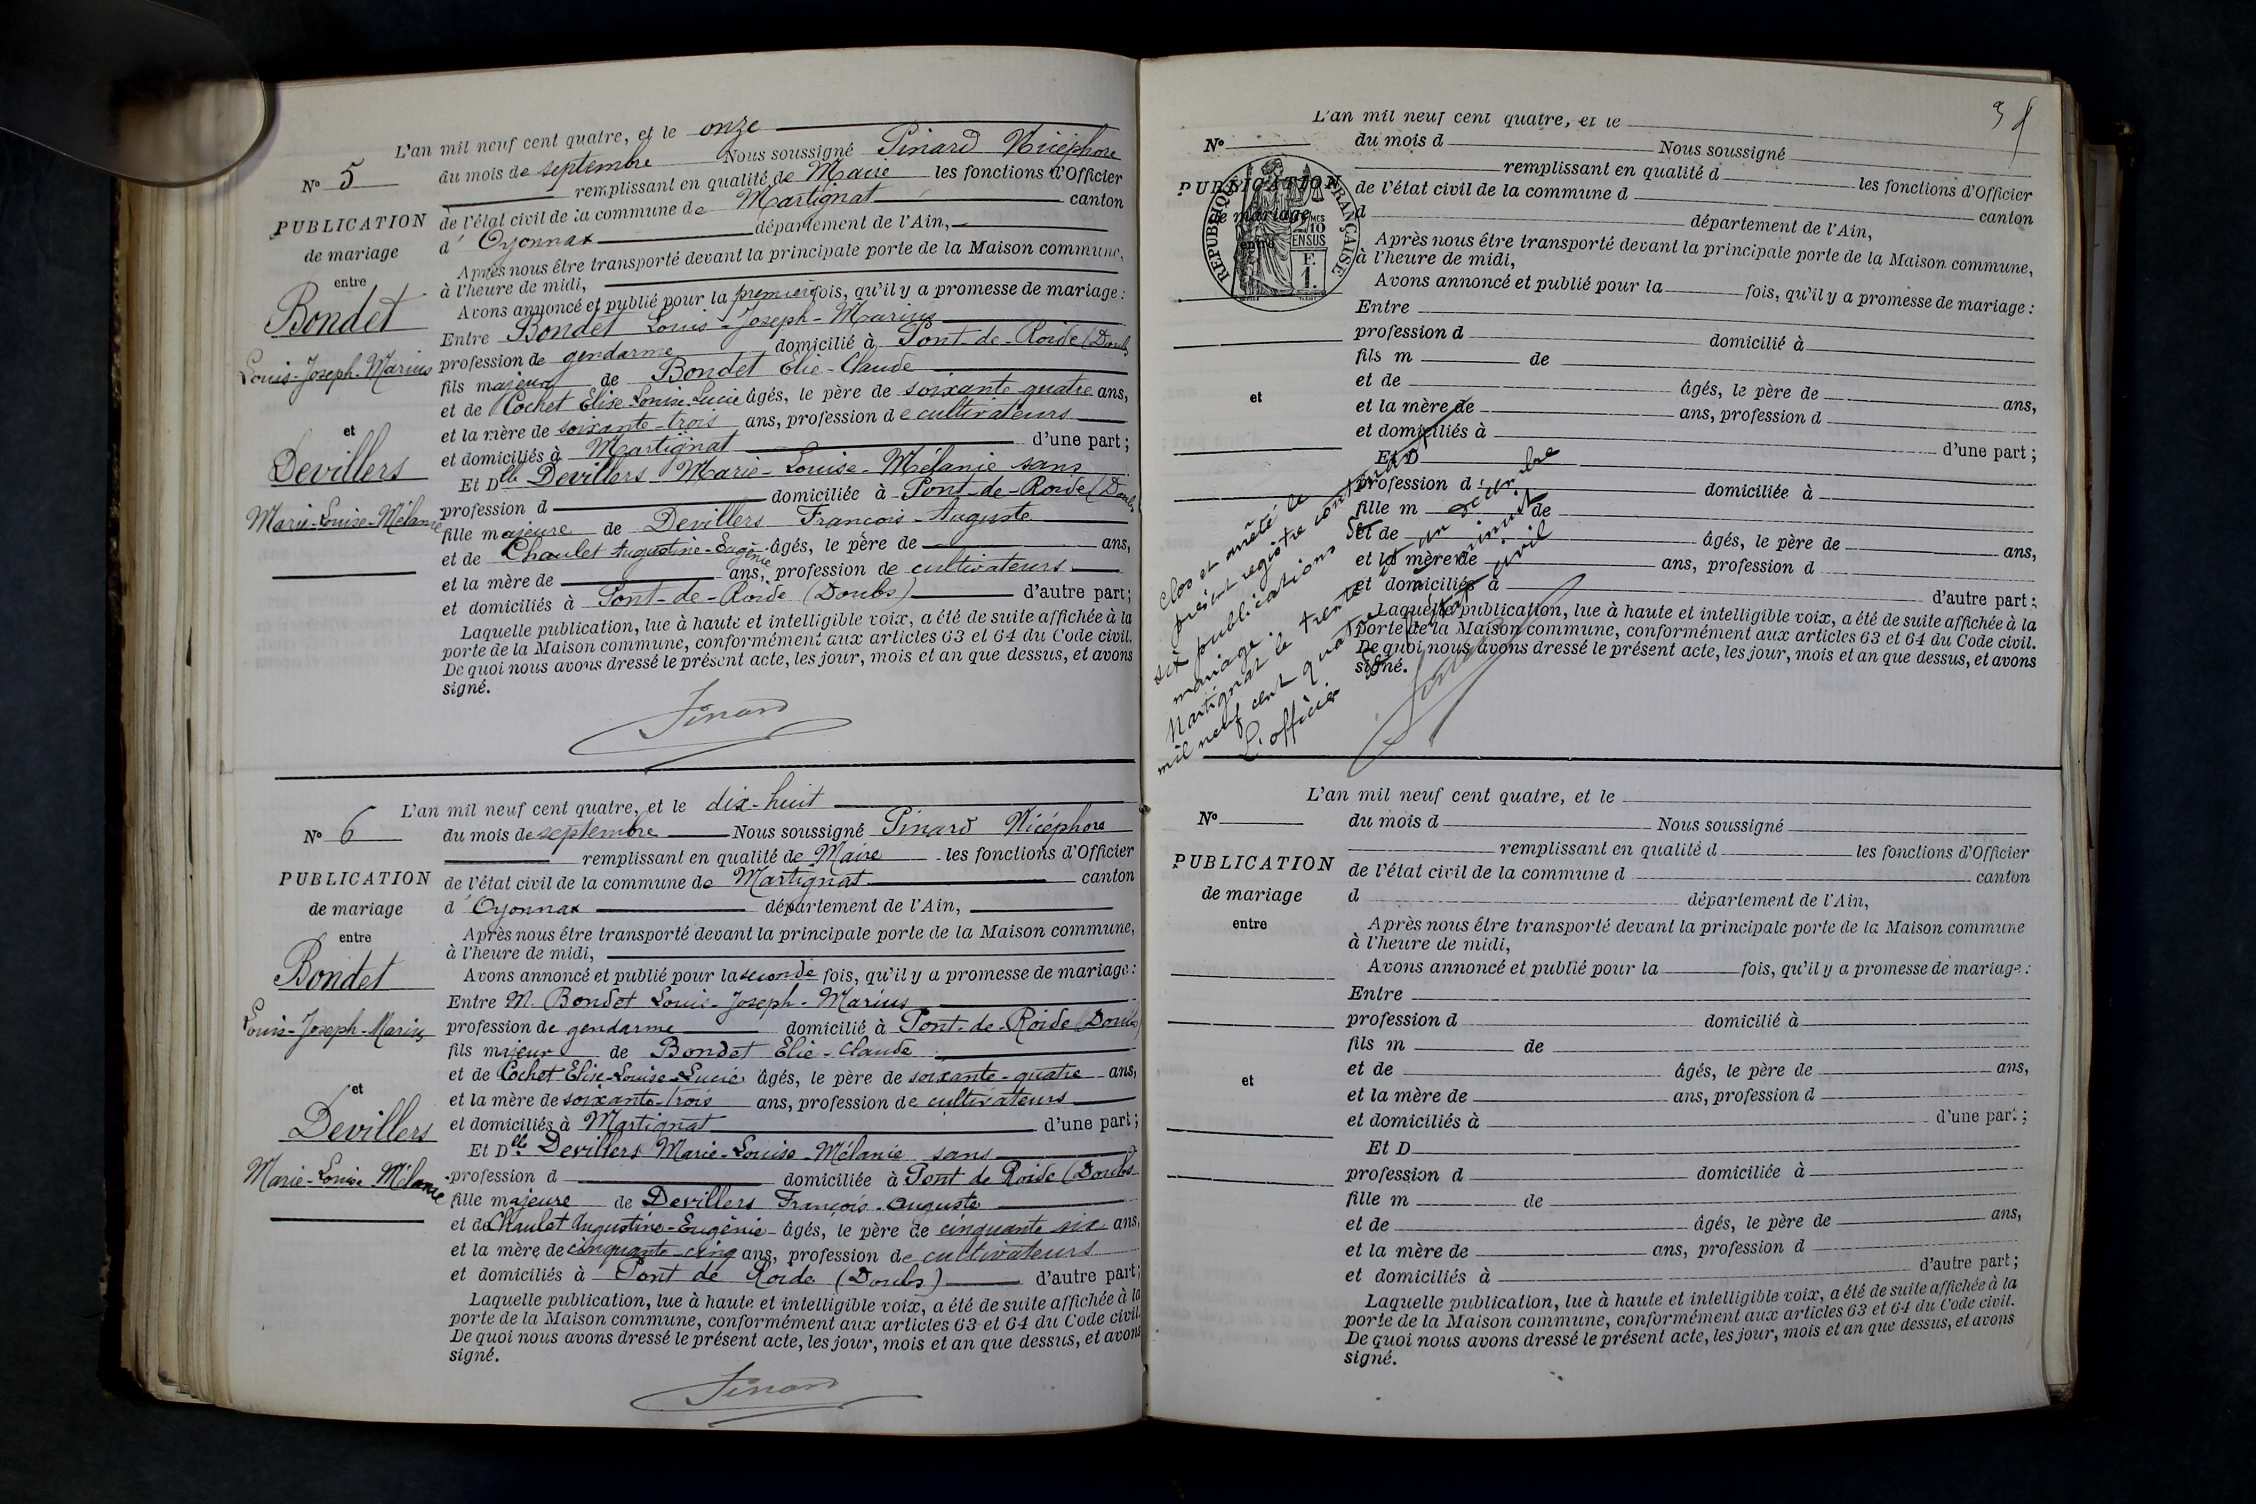 L'an mil neuf cent quatre, et le onze
du mois de septembre Nous soussigné Pinard Nicéphore
Nº 5
remplissant en qualité de Maire les fonctions d'Officier
PUBLICATION
de l'état civil de la commune de Martignat canton
de mariage
d'Oyonnax département de l'Ain,
entre
Après nous être transporté devant la principale porte de la Maison commune,
à l'heure de midi,
Avons annoncé et publié pour la première fois, qu'il y a promesse de mariage :
Bondet
Entre Bondet Louis-Joseph-Marius
Louis-Joseph-Marius
profession de gendarme domicilié à Pont-de-Roide (Doubs
fils majeur de Bondet Elie-Claude
et de Cochet Elise-Louise-Lucie âgés, le père de soixante quatre ans,
et
et la mère de soixante-trois ans, profession de cultivateurs
et domiciliés à Martignat d'une part ;
Devillers
Et Dlle Devillers Marie-Louise-Mélanie sans
Marie-Louise-Mélanie
profession d domiciliée à Pont-de-Roide (Doubs
fille majeure de Devillers François-Auguste
et de Chaulet Augustine-Eugénie âgés, le père de ans,
et la mère de ans, profession de cultivateurs
et domiciliés à Pont-de-Roide (Doubs) d'autre part ;
Laquelle publication, lue à haute et intelligible voix, a été de suite affichée à la
porte de la Maison commune, conformément aux articles 63 et 64 du Code civil.
De quoi nous avons dressé le présent acte, les jour, mois et an que dessus, et avons
signé.
Pinard
L'an mil neuf cent quatre, et le dix-huit
Nº 6
du mois de septembre Nous soussigné Pinard Nicéphore
remplissant en qualité de Maire les fonctions d'Officier
PUBLICATION
de l'état civil de la commune de Martignat canton
de mariage
d'Oyonnax département de l'Ain,
entre
Après nous être transporté devant la principale porte de la Maison commune,
à l'heure de midi,
Bondet
Avons annoncé et publié pour la seconde fois, qu'il y a promesse de mariage :
Entre M. Bondet Louis-Joseph-Marius
Louis-Joseph-Marius
profession de gendarme domicilié à Pont-de-Roide (Doubs)
fils majeur de Bondet Elie-Claude
et de Cochet Elise-Louise-Lucie âgés, le père de soixante-quatre ans,
et
et la mère de soixante-trois ans, profession de cultivateurs
Devillers
et domiciliés à Martignat d'une part ;
Et Dlle Devillers Marie-Louise-Mélanie sans
Marie-Louise Mélanie
profession d domiciliée à Pont de Roide (Doubs
fille majeure de Devillers François-Auguste
et de Chaulet Augustine-Eugénie âgés, le père de cinquante six ans,
et la mère de cinquante-cinq ans, profession de cultivateurs
et domiciliés à Pont de Roide (Doubs) d'autre part ;
Laquelle publication, lue à haute et intelligible voix, a été de suite affichée à la
porte de la Maison commune, conformément aux articles 63 et 64 du Code civil.
De quoi nous avons dressé le présent acte, les jour, mois et an que dessus, et avons
signé.
Pinard
L'an mil neuf cent quatre, et le
Nº
du mois d Nous soussigné
remplissant en qualité d les fonctions d'Officier
PUBLICATION
de l'état civil de la commune d canton
de mariage
d département de l'Ain,
entre
REPUBLIQUE FRANÇAISE
2/10
EN SUS
F.
1.
Après nous être transporté devant la principale porte de la Maison commune,
à l'heure de midi,
Avons annoncé et publié pour la fois, qu'il y a promesse de mariage :
Entre
profession d domicilié à
fils m de
et de âgés, le père de ans,
et
et la mère de ans, profession d
et domiciliés à d'une part ;
Et D
profession d domiciliée à
fille m de
et de âgés, le père de ans,
et la mère de ans, profession d
et domiciliés à d'autre part ;
Laquelle publication, lue à haute et intelligible voix, a été de suite affichée à la
porte de la Maison commune, conformément aux articles 63 et 64 du Code civil.
De quoi nous avons dressé le présent acte, les jour, mois et an que dessus, et avons
signé.
Clos et arrêté le
présent registre contenant
six publications de
mariage.
Martignat le trente et un décembre
mil neuf cent quatre à minuit
L'officier de l'état civil
Pinard
L'an mil neuf cent quatre, et le
Nº
du mois d Nous soussigné
remplissant en qualité d les fonctions d'Officier
PUBLICATION
de l'état civil de la commune d canton
de mariage
d département de l'Ain,
entre
Après nous être transporté devant la principale porte de la Maison commune
à l'heure de midi,
Avons annoncé et publié pour la fois, qu'il y a promesse de mariage :
Entre
profession d domicilié à
fils m de
et de âgés, le père de ans,
et
et la mère de ans, profession d
et domiciliés à d'une part ;
Et D
profession d domiciliée à
fille m de
et de âgés, le père de ans,
et la mère de ans, profession d
et domiciliés à d'autre part ;
Laquelle publication, lue à haute et intelligible voix, a été de suite affichée à la
porte de la Maison commune, conformément aux articles 63 et 64 du Code civil.
De quoi nous avons dressé le présent acte, les jour, mois et an que dessus, et avons
signé.